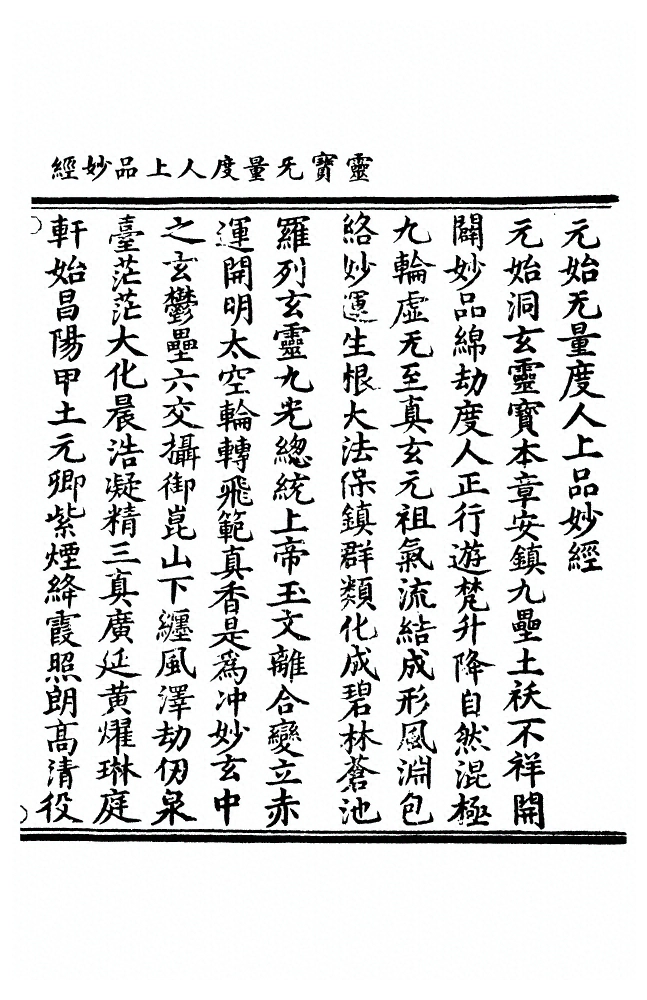 靈寶旡量度人上品妙經
元始旡量度人上品妙經
元始洞玄靈寶本章安鎮九壘土祅不祥開
闢妙品綿劫度人正行遊梵升降自然混極
九輪虛旡至真玄元祖氣流結成形風淵包
絡妙運生根大法保鎮群類化成碧林蒼池
羅列玄靈九光總統上帝玉文離合變立赤
運開明太空輪轉飛範真香是為冲妙玄中
之玄鬱壘六交攝御崑山下纏風澤劫仞泉
臺茫茫大化晨浩凝精三真廣延黃耀琳庭
軒始昌陽甲土元卿紫煙絳霞照朗高清役